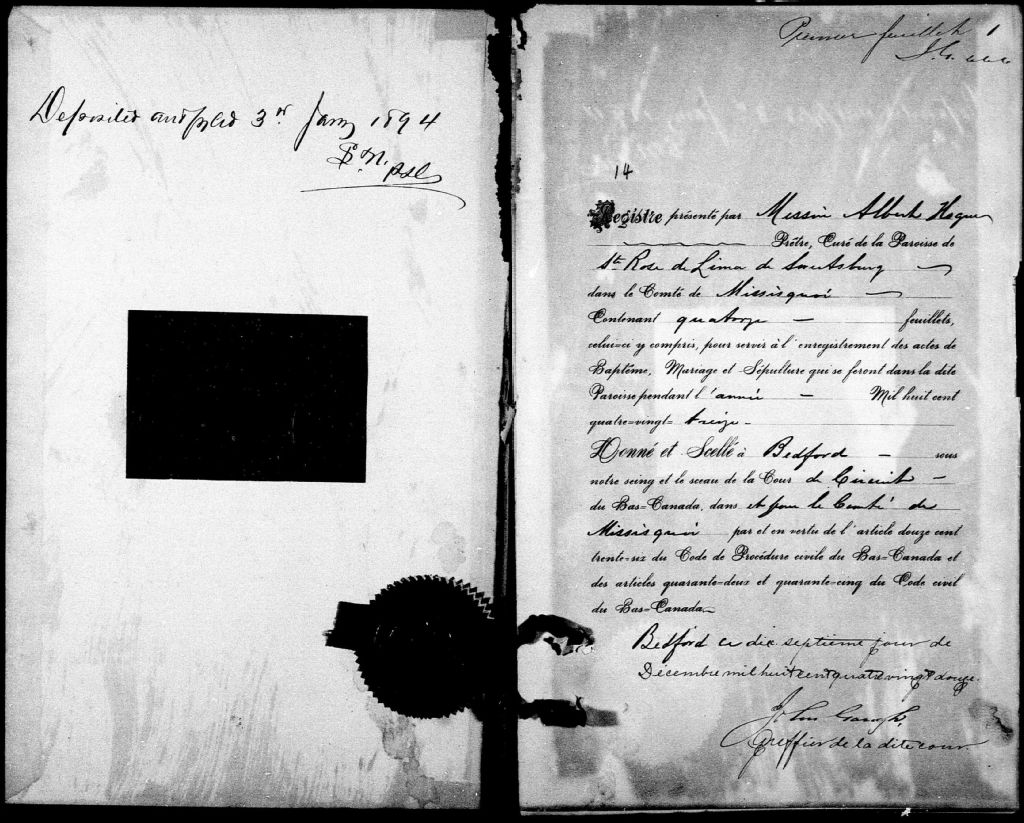 Deposited and filed 3rd Jany 1894
P.M.
Premier feuillet 1
14
Registre présenté par Messire Albert
Prêtre, Curé de la Paroisse de
Ste Rose de Lima de Sweetsburg
dans le Comté de Missisquoi
Contenant quatorze — feuillets,
celui-ci y compris, pour servir à l'enregistrement des actes de
Baptême, Mariage et Sépulture qui se feront dans la dite
Paroisse pendant l'année — Mil huit cent
quatre=vingt= treize -
Donné et Scellé à Bedford — sous
notre seing et le sceau de la Cour de Circuit —
du Bas=Canada, dans et pour le Comté de
Missisquoi par et en vertu de l'article douze cent
trente-six du Code de Procédure civile du Bas-Canada et
des articles quarante-deux et quarante-cinq du Code civil
du Bas-Canada.
Bedford ce dix septieme jour de
Décembre mil huit cent quatre vingt douze.
John Gough,
Greffier de la dite cour